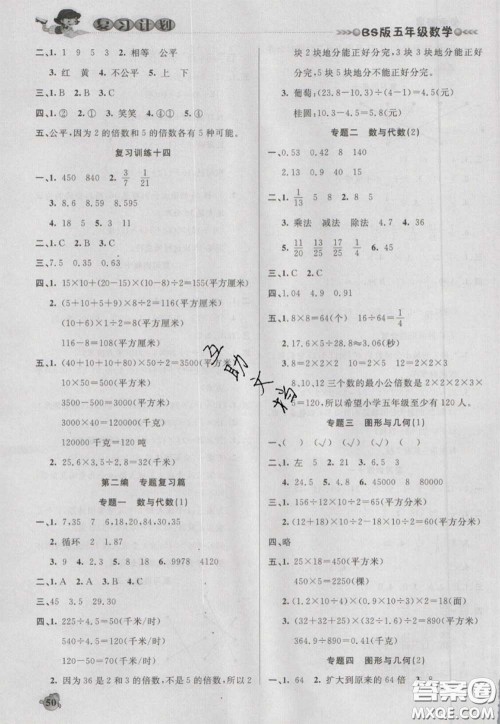 复习计划
BS版五年级数学
二、1. 1 9 5 3 2. 相等 公平
3. 红 黄 4. 不公平 5. 3 2
三、1. C 2. A 3. C
四、1. ① ② 3. 笑笑 4. ④ ①
五、公平,因为2的倍数和5的倍数各有5种可能。
复习训练十四
一、1. 450 840 2. 3/7 1/21
3. 8.6 8.59 8.595
4. 18 5. 5 11 3
二、1. C 2. B 3. C
三、7.5 0.35 0.63
四、1. 15×10+(20-15)×(10-8)÷2=155(平方厘米)
2. (5+10+5+9)×8÷2=116(平方厘米)
(10+6)×1÷2=8(平方厘米)
116-8=108(平方厘米)
五、1. (40+10+10+80)×50÷2=3500(平方千米)
10×50÷2=250(平方千米)
3500-250=3250(平方千米)
60×10÷2×400=120000(千克)
120000千克=120吨
2. 25.6×3.5-32=57.6(米)
第二编 专题复习篇
专题一 数与代数(1)
一、1. 7,35 7 2. 6,18,20,84,30,35
2. 循环 2 1.87
3. 9 4. 2,3 5. 8 18 6. 9978 2019
二、1. A 2. B 3. A 4. C 5. B
三、45 3.5 29.30
四、1. 50÷2/25=625(千米/时)
540÷2/25=6750(千米/时)
540÷1/2=1080(千米/时)
2. 因为36是2和3的倍数,不是5的倍数,所以2
块3块地分能正好分完,5块地分不能正好分完。
3. 葡萄:(23.8-10.3)÷(5-2)=4.5(元)
桂圆:(10.3-4.5×2)÷2=0.65(元)
专题二 数与代数(2)
一、1. 0.53 0.42 15 0.8 140
2. 1/13 5 8
3. 乘法 减法 除法 4. 7 4.36
5. 11/20 7/20 11/13 6. 45
二、1. B 2. C 3. A 4. B
三、1. 1.04 4.9 0.91
四、1. 8×8=64(个) 16÷64=1/4
2. 17.5×28.8÷3.06(秒)
3. 8=2×2×2 10=2×5 12=2×2×3
8,10,12三个数的最小公倍数是2×2×2×3
×5=120,所以希望小学五年级至少有120人。
专题三 图形与几何(1)
一、( ) (√) (√) ( )
二、1. 左 7 2. 54 3. 6.5 6.3
4. 24 4.8 5. 50000 50 0.5
三、1. 156÷12×10÷2=65(平方分米)
2. 8×10÷2=40(平方厘米)
四、略
五、1. 25×18=450(平方米)
450÷2=225(棵)
2. 18×12-(12+8)×10÷2=116(平方厘米)
3. (32+32+25)×10÷2=450(平方米)
364.9÷450≈0.81(千克)
专题四 图形与几何(2)
一、1. 64 2. 扩大到原来的64倍 3. 8
50
互助文档
答案圈
MXQE.COM